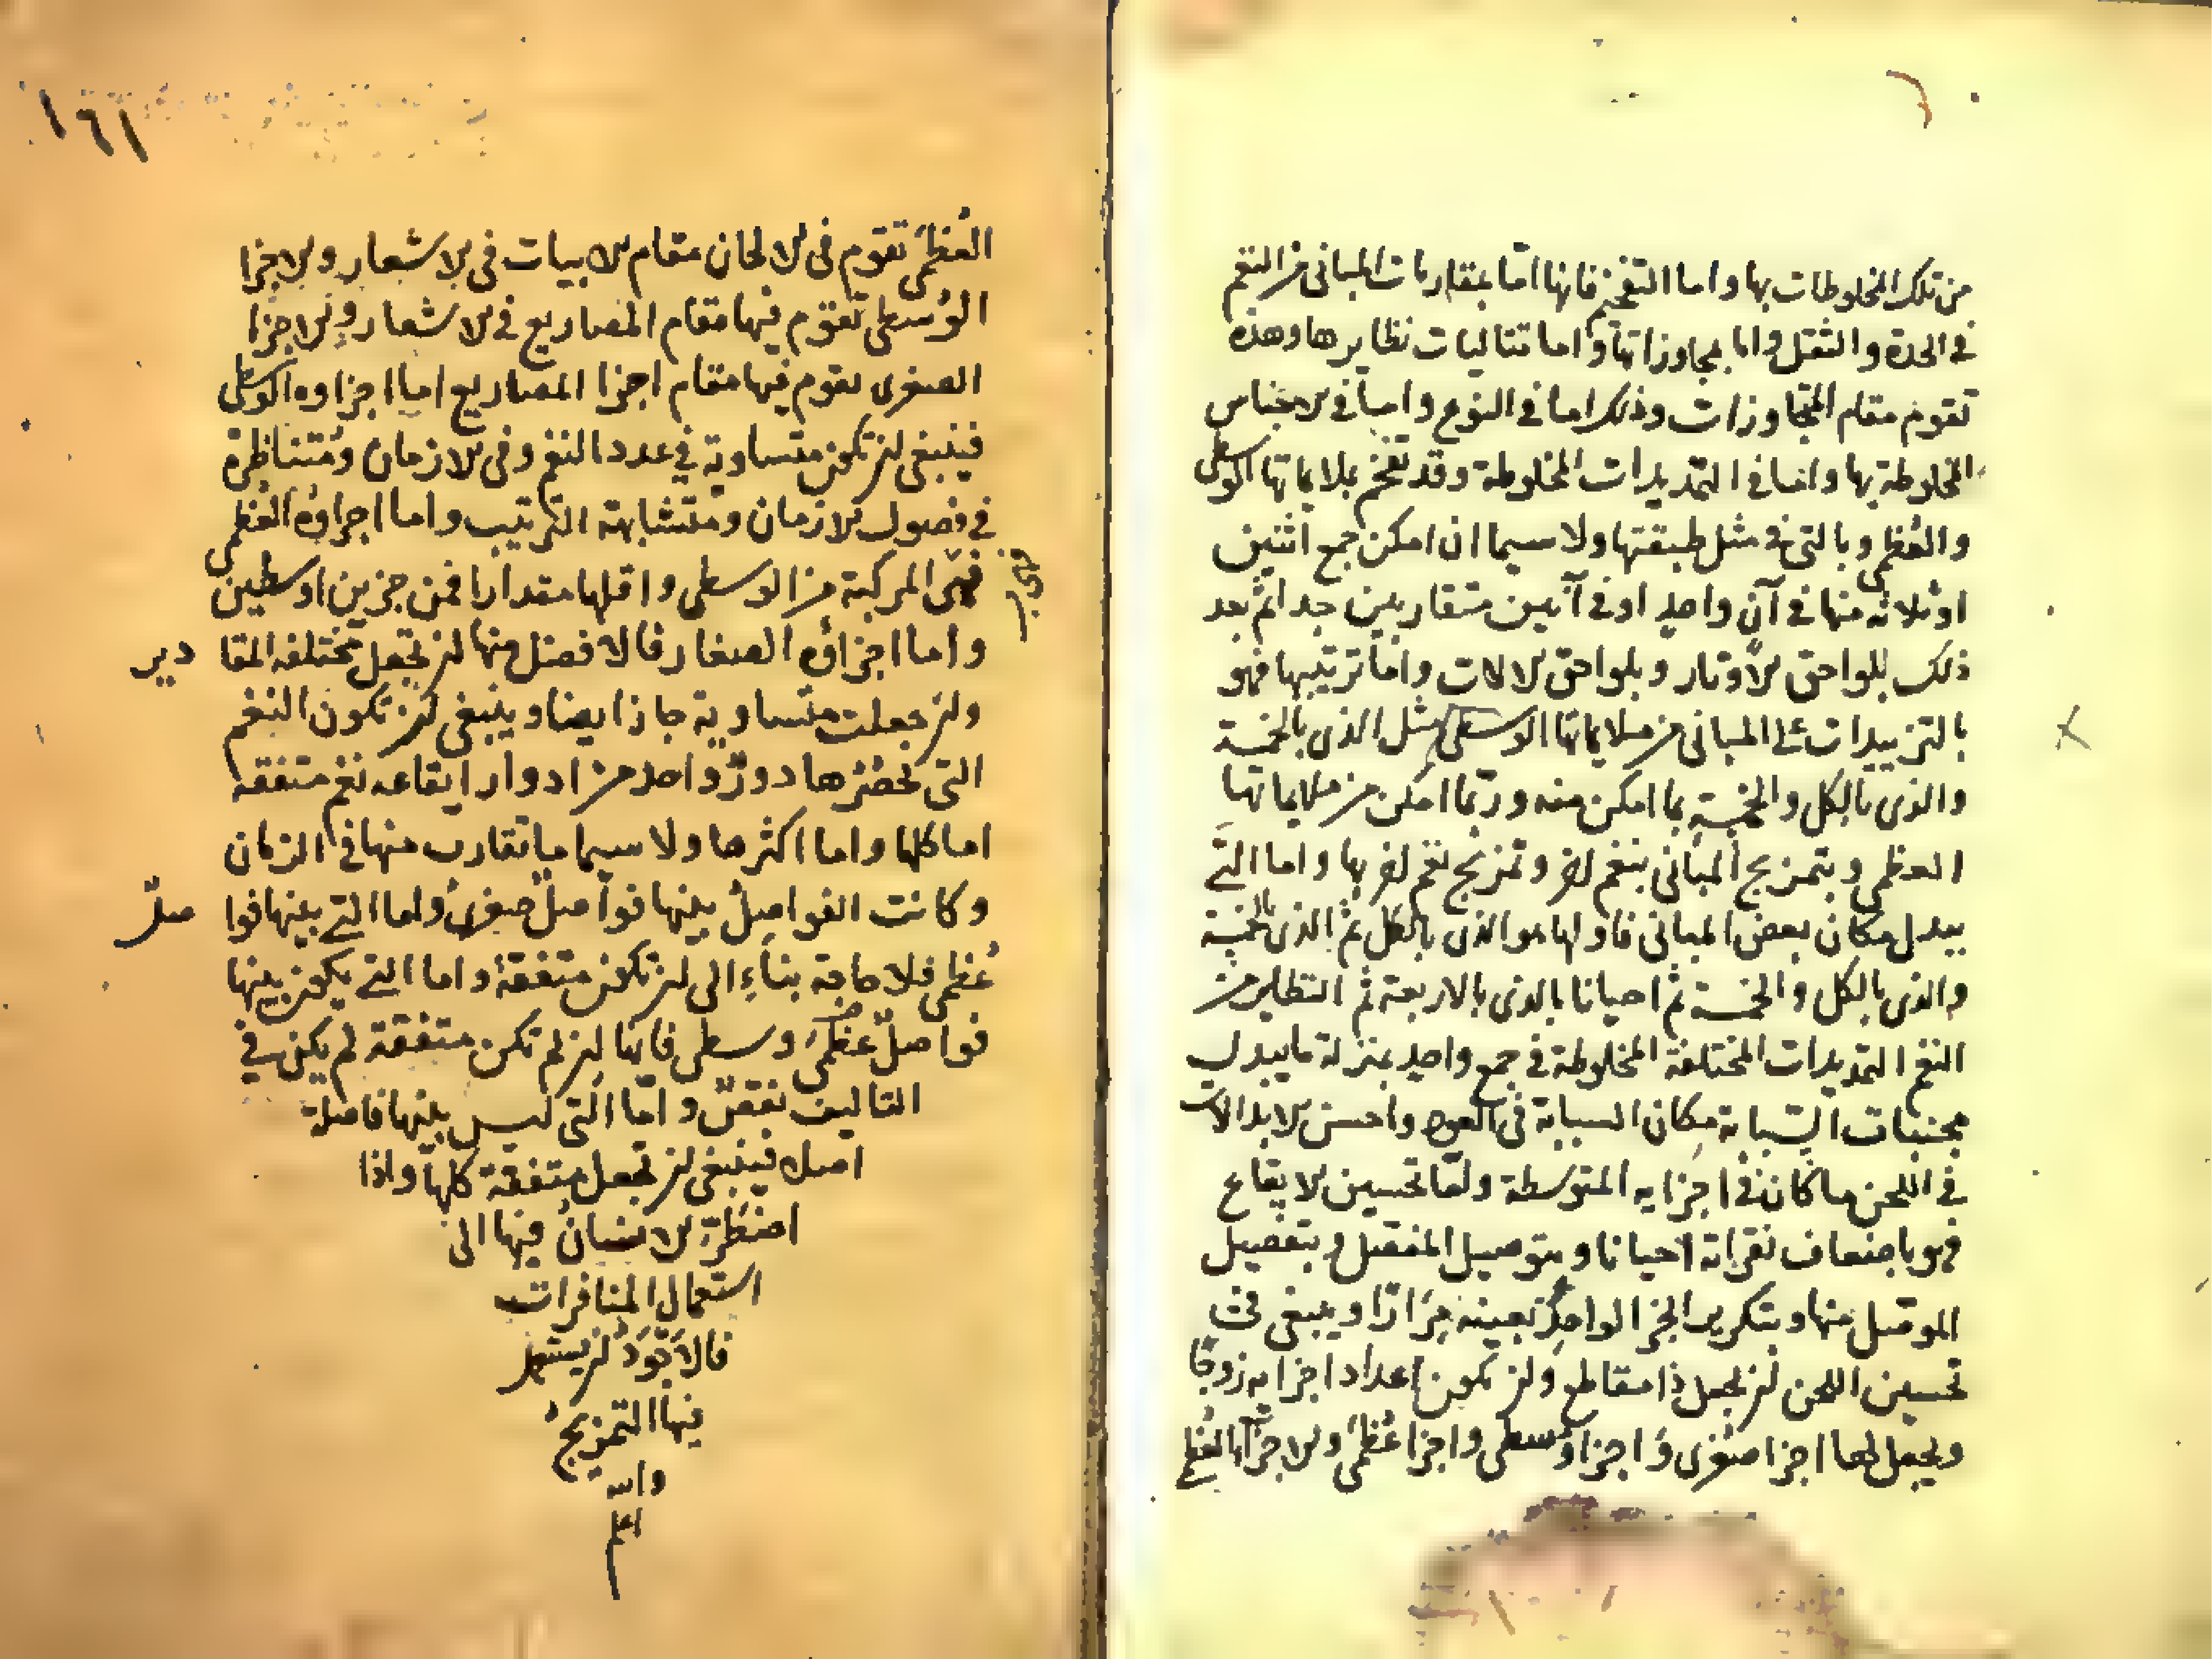 من تلك المخلوطات بها واما التفخيم فانها اما بمقاربات المبانى من النغم
فى الحدة والثقل واما بمجاوزاتها واما متتاليات نظايرها وهذه
تقوم مقام المتجاوزات وذلك اما فى النوع واما فى الاجناس
المخلوطة بها واما فى التمديدات المخلوطة وقد تفخم بملايماتها الوسطى
والعظمى وبالتى فى مثل طبقتها ولا سيما ان امكن جمع اثنين
او ثلاثة منها فى آن واحد او فى آنين متقاربين جدا ثم بعد
ذلك بلواحق الاوتار وبلواحق الالات واما ترتيبها فهو
بالتزييدات على المبانى من ملايماتها الوسطى مثل الذى بالخمسة
والذى بالكل والخمسة بما امكن منه وربما امكن من ملايماتها
العظمى وبتمزيج المبانى بنغم اخر وتمزيج نغم اخر بها واما التى
يبدل مكان بعض المبانى فاولها هو الذى بالكل ثم الذى بالخمسة
والذى بالكل والخمسة ثم احيانا بالذى بالاربعة ثم النظاير من
النغم التمديدات المختلفة المخلوطة فى جمع واحد بمنزلة ما يبدل
مجنبات السبابة مكان السبابة فى العود واحسن الابدالات
فى اللحن ما كان فى اجزايه المتوسطة واما تحسين الايقاع
فهو باضعاف نقراته احيانا وبتوصيل المنفصل وبتفصيل
الموصل منها وبتكرير الجز الواحد بعينه مرارا وينبغى فى
تحسين اللحن ان يجعل ذا مقاطع وان تكون اعداد اجزايه زوجا
ويجعل لها اجزا صغرى واجزا وسطى واجزا عظمى والاجزا العظمى
١٦١
العظمى تقوم فى الالحان مقام الابيات فى الاشعار والاجزا
الوسطى تقوم فيها مقام المصاريع فى الاشعار والاجزا
الصغرى تقوم فيها مقام اجزا المصاريع اما اجزاوه الوسطى
فينبغى ان تكون متساوية فى عدد النغم وفى الازمان ومتناظرة
فى فصول الازمان ومتشابهة الترتيب واما اجزاوه العظمى
فهى المركبة من الوسطى واقلها مقدارا فمن جزين اوسطين
واما اجزاؤه الصغار فالافضل منها ان تجعل مختلفة المقادير
وان جعلت متساوية جاز ايضا وينبغى ان تكون النغم
التى تحضرها دور واحد من ادوار ايقاعه نغم متفقة
اما كلها واما اكثرها ولا سيما ما تقارب منها فى الزمان
وكانت الفواصل بينها فواصل صغرى واما التى بينها فواصل
عظمى فلا حاجة بناء الى ان تكون متفقة واما التى يكون بينها
فواصل عظمى وسطى فانها ان لم تكن متفقة لم يكن فى
التاليف نقص واما التى ليس بينها فاصلة
اصلا فينبغى ان تجعل متفقة كلها واذا
اضطر الانسان فيها الى
استعمال المنافرات
فالاجود ان يستعمل
فيها التمزيج
والله
اعلم